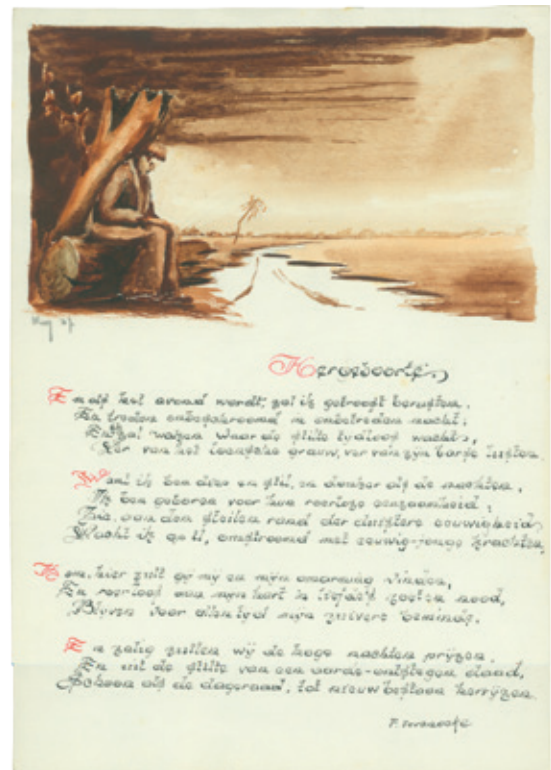 Hergeboorte
En als het avond wordt, zal ik getroost berusten,
En treden onbeschroomd in onbetreden nacht;
En zal waken waar de stilte tydloos wacht,
Ver van het grauw, ver van zyn barse lusten.
Want ik ben diep en stil, en donker als de nachten,
Ik ben geboren voor hun reerloze eenzaamheid;
Zie, aan den steilen rand der duistere eeuwigheid
Wacht ik op U, omstroomd met eeuwig-jonge krachten.
Kom, hier zult gy my en myn omarming vinden,
En roerloos aan myn hart in liefde's zoeten nood,
Blyven voor allen tyd myn zuivere beminde.
En zalig zullen wy de hoge nachten pryzen,
En uit de stilte van een aarde-ontstegen dood,
Schoon als de dageraad, tot nieuw bestaan herryzen.